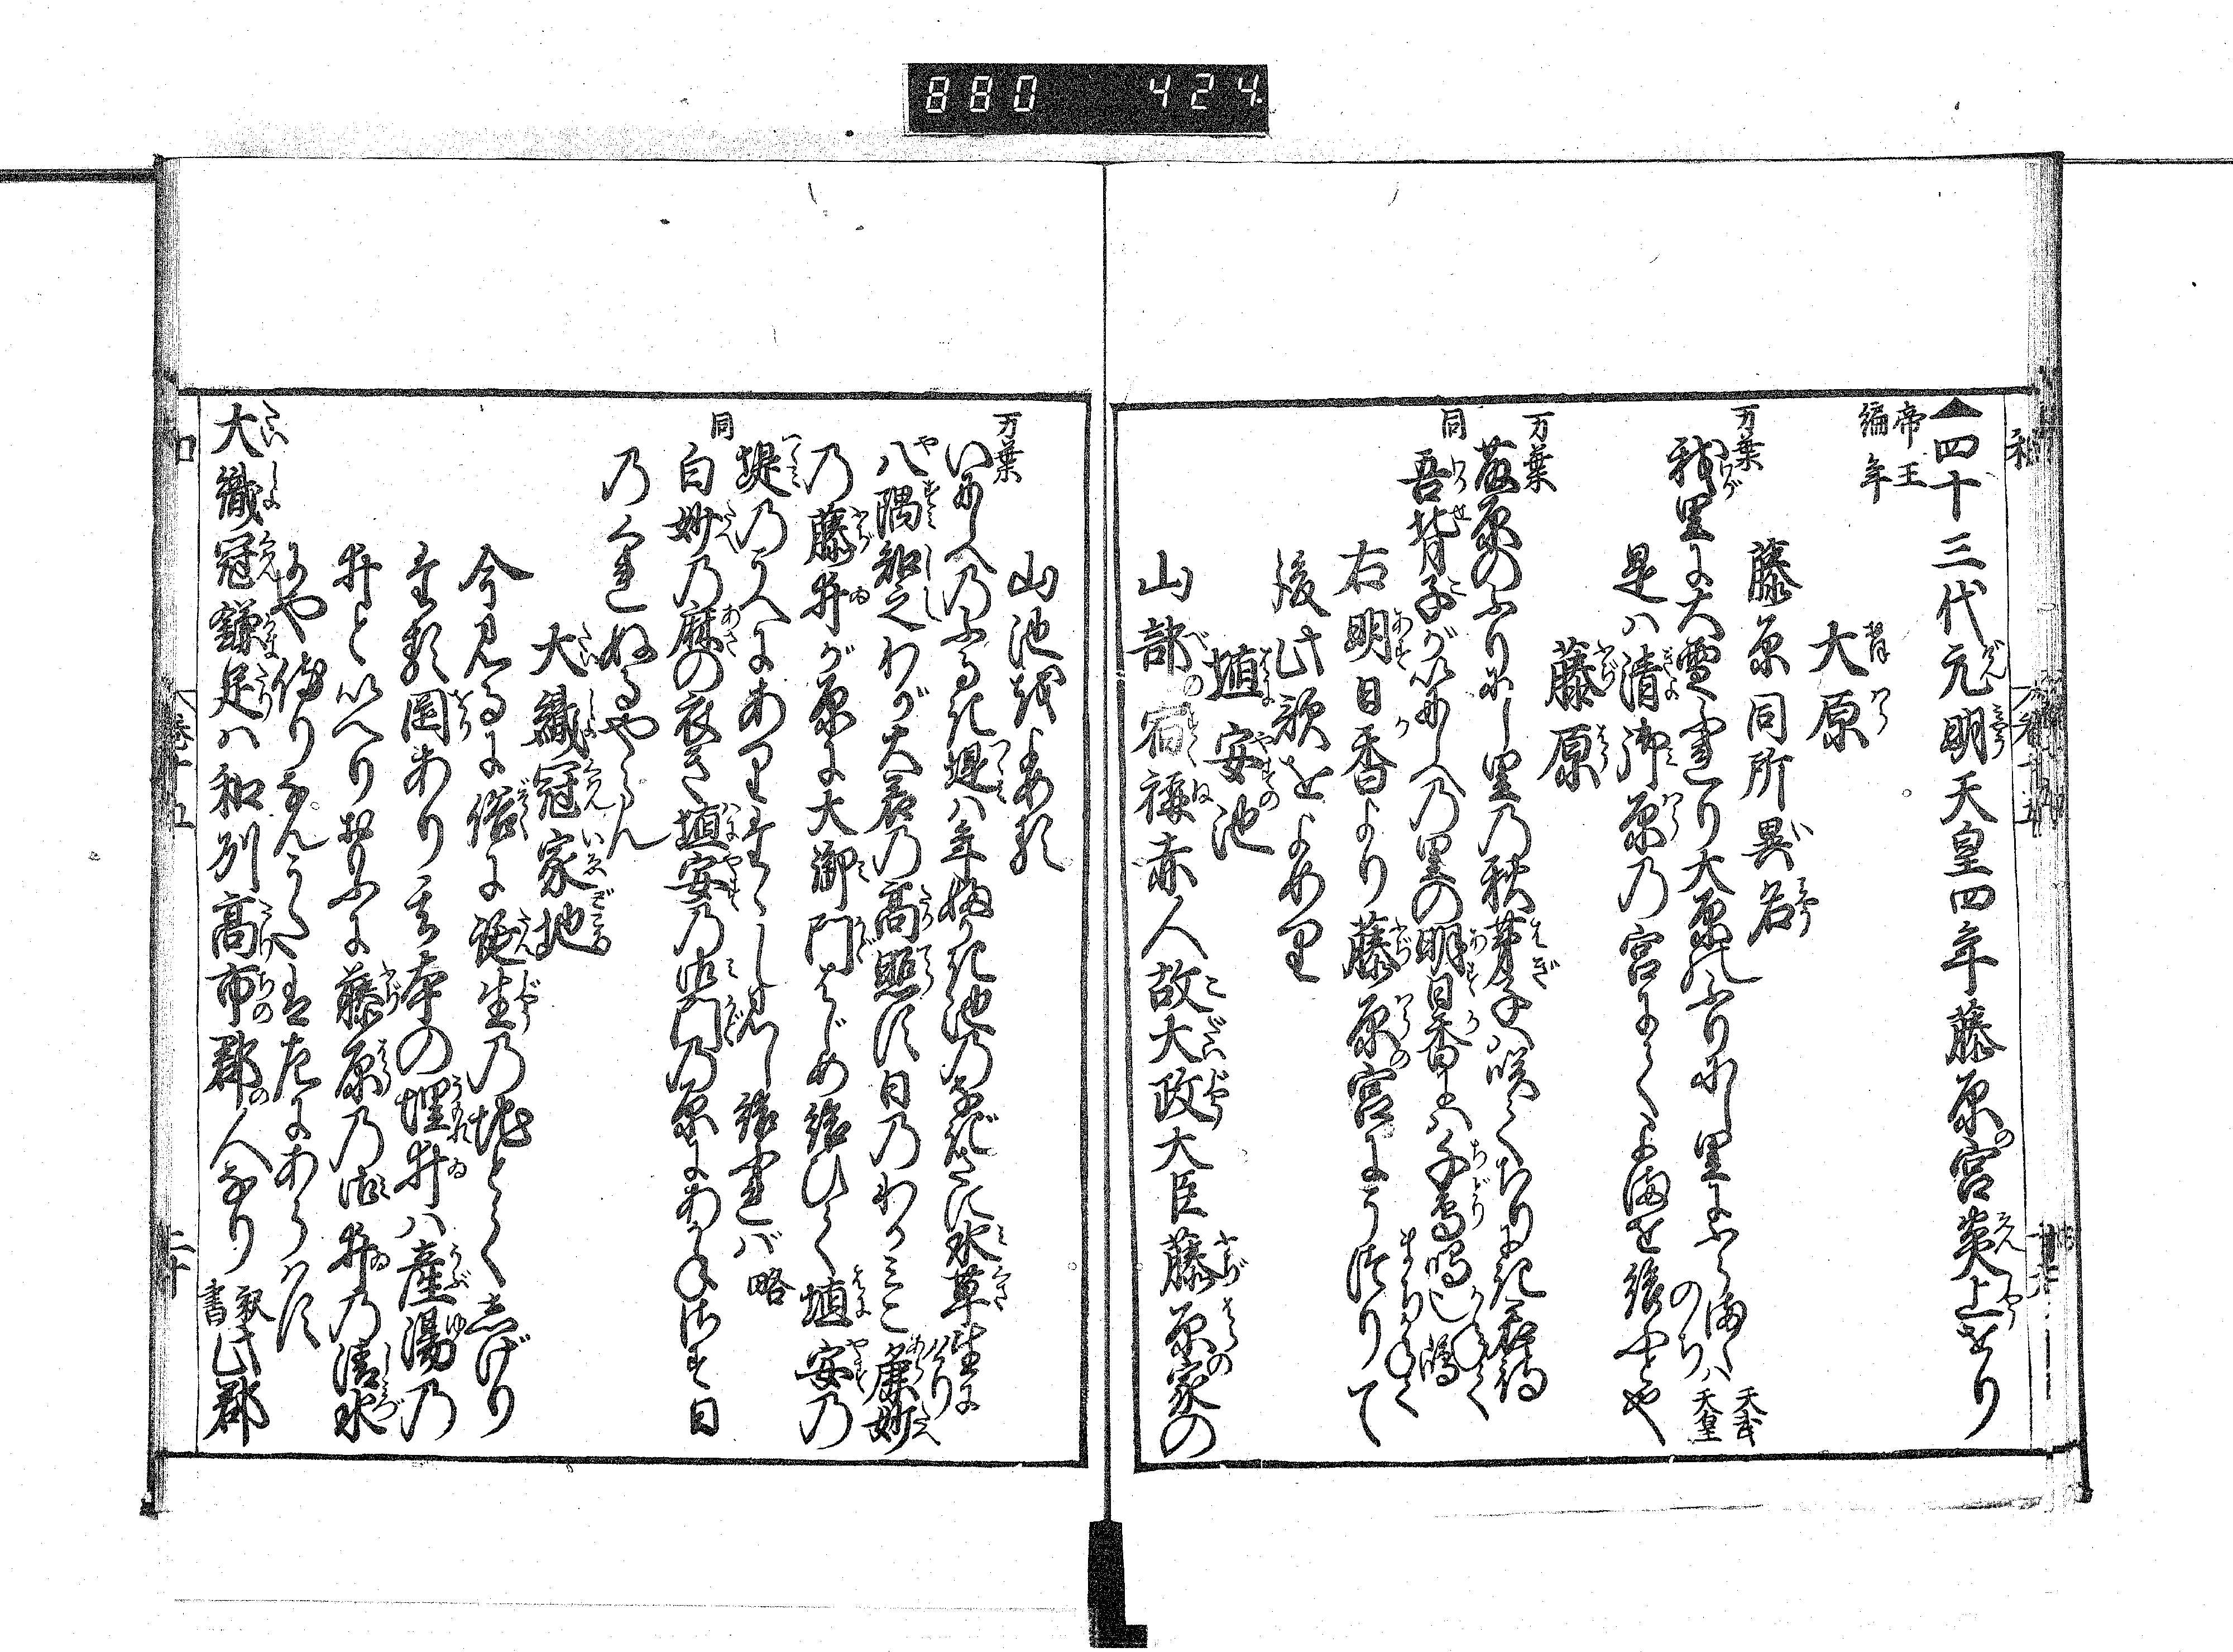 880 424
▲四十三代元明天皇四年藤原の宮炎上せり
帝王
編年
大原
藤原同所異名
万葉
我里に大雪ふれり大原のふりにし里にふらまくはのち 天武天皇
是ハ清御原の宮にてよませ給ふとや
藤原
万葉
藤原のふりにし里の秋芽子ハ咲てちりにき君待かねて
同
吾背子がいにしへの里の明日香にハ千鳥鳴也嶋まちかねて
右明日香より藤原の宮にうつりて
後此歌をよめり
埴安の池
山部の宿祢赤人故大政大臣藤原の家の
山池をよめる
万葉
いにしへのふるき堤ハ年ふかき池のなぎさに水草生にけり
八隅知之わが大君の高照す日のわかみこ麁妙
の藤井が原に大御門はじめ給ひて埴安の
堤のうへにありたゝし見し給へれバ 略
同
白妙の麻の衣き埴安の御門の原にあかねさす日
のくれぬるやらん
大織冠家地
今見るに俗に誕生の地とてしげり
たる岡あり玄本の埋井ハ産湯の
井といへりおりふに藤原の御井の清水
にや侍りなんうたは左にあらハす
大織冠鎌足ハ和州高市の郡の人なり 釈書 此郡